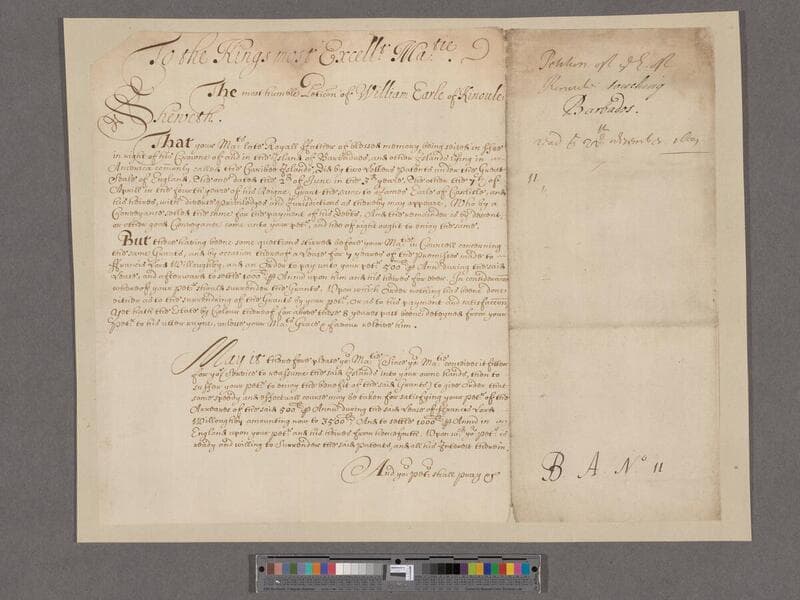 To the Kings most Excellt Matie
The most humble Peticon of William Earle of Kinoule
Sheweth.
That your Mats late Royall ffather of blessed memory being seized in ffee
in right of his Crowne of and in the Island of Barbadoes, and other Islands lying in
America comonly called the Caribee Islands, Did by two Letters Patents under the Great
Seale of England, The one dated the 2d of June in the 3d yeare, The other the 7th of
Aprill in the fourth yeare of his Reigne, Grant the same to James Earle of Carlisle, and
his heires, with diverse priviledges and Jurisdictions as thereby may appeare, Who by a
Conveyance setled the same for the payment of his Debts, And the remainder is by descent,
or other good Conveyance come unto your petr, and hee of right ought to enjoy the same.
But there having beene some questions stirred before your Matie in Councell concerning
the same Grants, and by occation thereof a Lease for 7 yeares of the Premisses made to
ffrancis Lord Willoughby, and an Order to pay unto your petr 500li P Annu during the said
Lease, and afterward to settle 1000li P Annu upon him and his heires for ever. In consideracon
whereof your Petr should surrender the Grants. Upon which Order nothing has beene done
either as to the surrendring of the Grants by your petr, Or as to his payment and satisfaccon
Yet hath the Estate by Colour thereof for above these 8 yeares past beene deteyned from your
Petr to his utter ruyne, unless your Mats Grace & favour releive him.
May it therefore please yor Matie (Since yor Matie conceives it fitter
for yor service to reassume the said Islands into your owne hands, then to
suffer your petr to enjoy the benefit of the said Grants) to give Order that
some speedy and effectuall course may be taken for satisfying your Petr of the
Arreares of the said 500li P Annu during the said Lease of ffrancis Lord
Willoughby amounting now to 3500li, And to settle 1000li P Annu in
England upon your petr and his heires from henceforth. Upon wch yor petr is
ready and willing to Surrender the said Patents, and all his Interest therein.
And yor Petr shall pray &c
Petition of ye E. of
Kinoule touching
Barbados.
read
11
B A. No 11